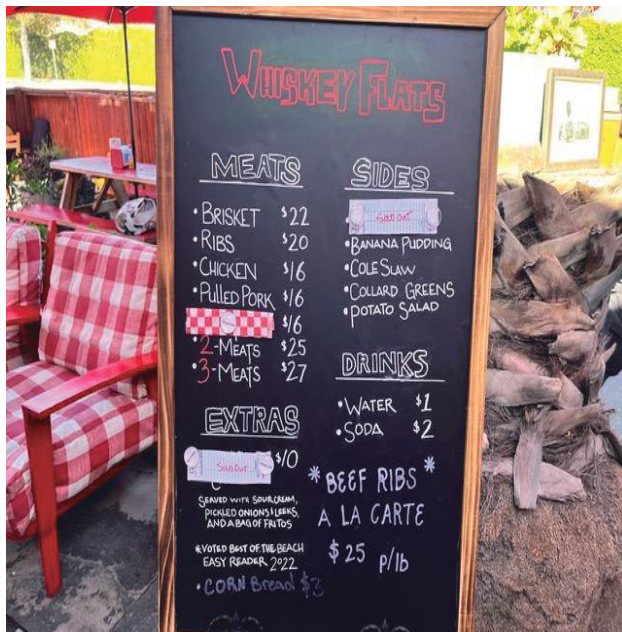 WHISKEY FLATS
MEATS
• BRISKET $22
• RIBS $20
• CHICKEN $16
• PULLED PORK $16
$16
• 2-MEATS $25
• 3-MEATS $27
EXTRAS
Sold Out $10
SERVED WITH SOUR CREAM,
PICKLED ONIONS, LEEKS,
AND A BAG OF FRITOS
*VOTED BEST OF THE BEACH
EASY READER 2022
• CORN Bread $3
SIDES
Sold Out
• BANANA PUDDING
• COLE SLAW
• COLLARD GREENS
• POTATO SALAD
DRINKS
• WATER $1
• SODA $2
* BEEF RIBS *
A LA CARTE
$25 p/lb